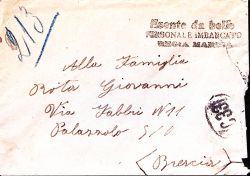 213
Esente da bollo
PERSONALE IMBARCATO
REGIA MARINA
Alla Famiglia
Rota Giovanni
Via Fabbri N 11
Palazzolo S/O
(Brescia)